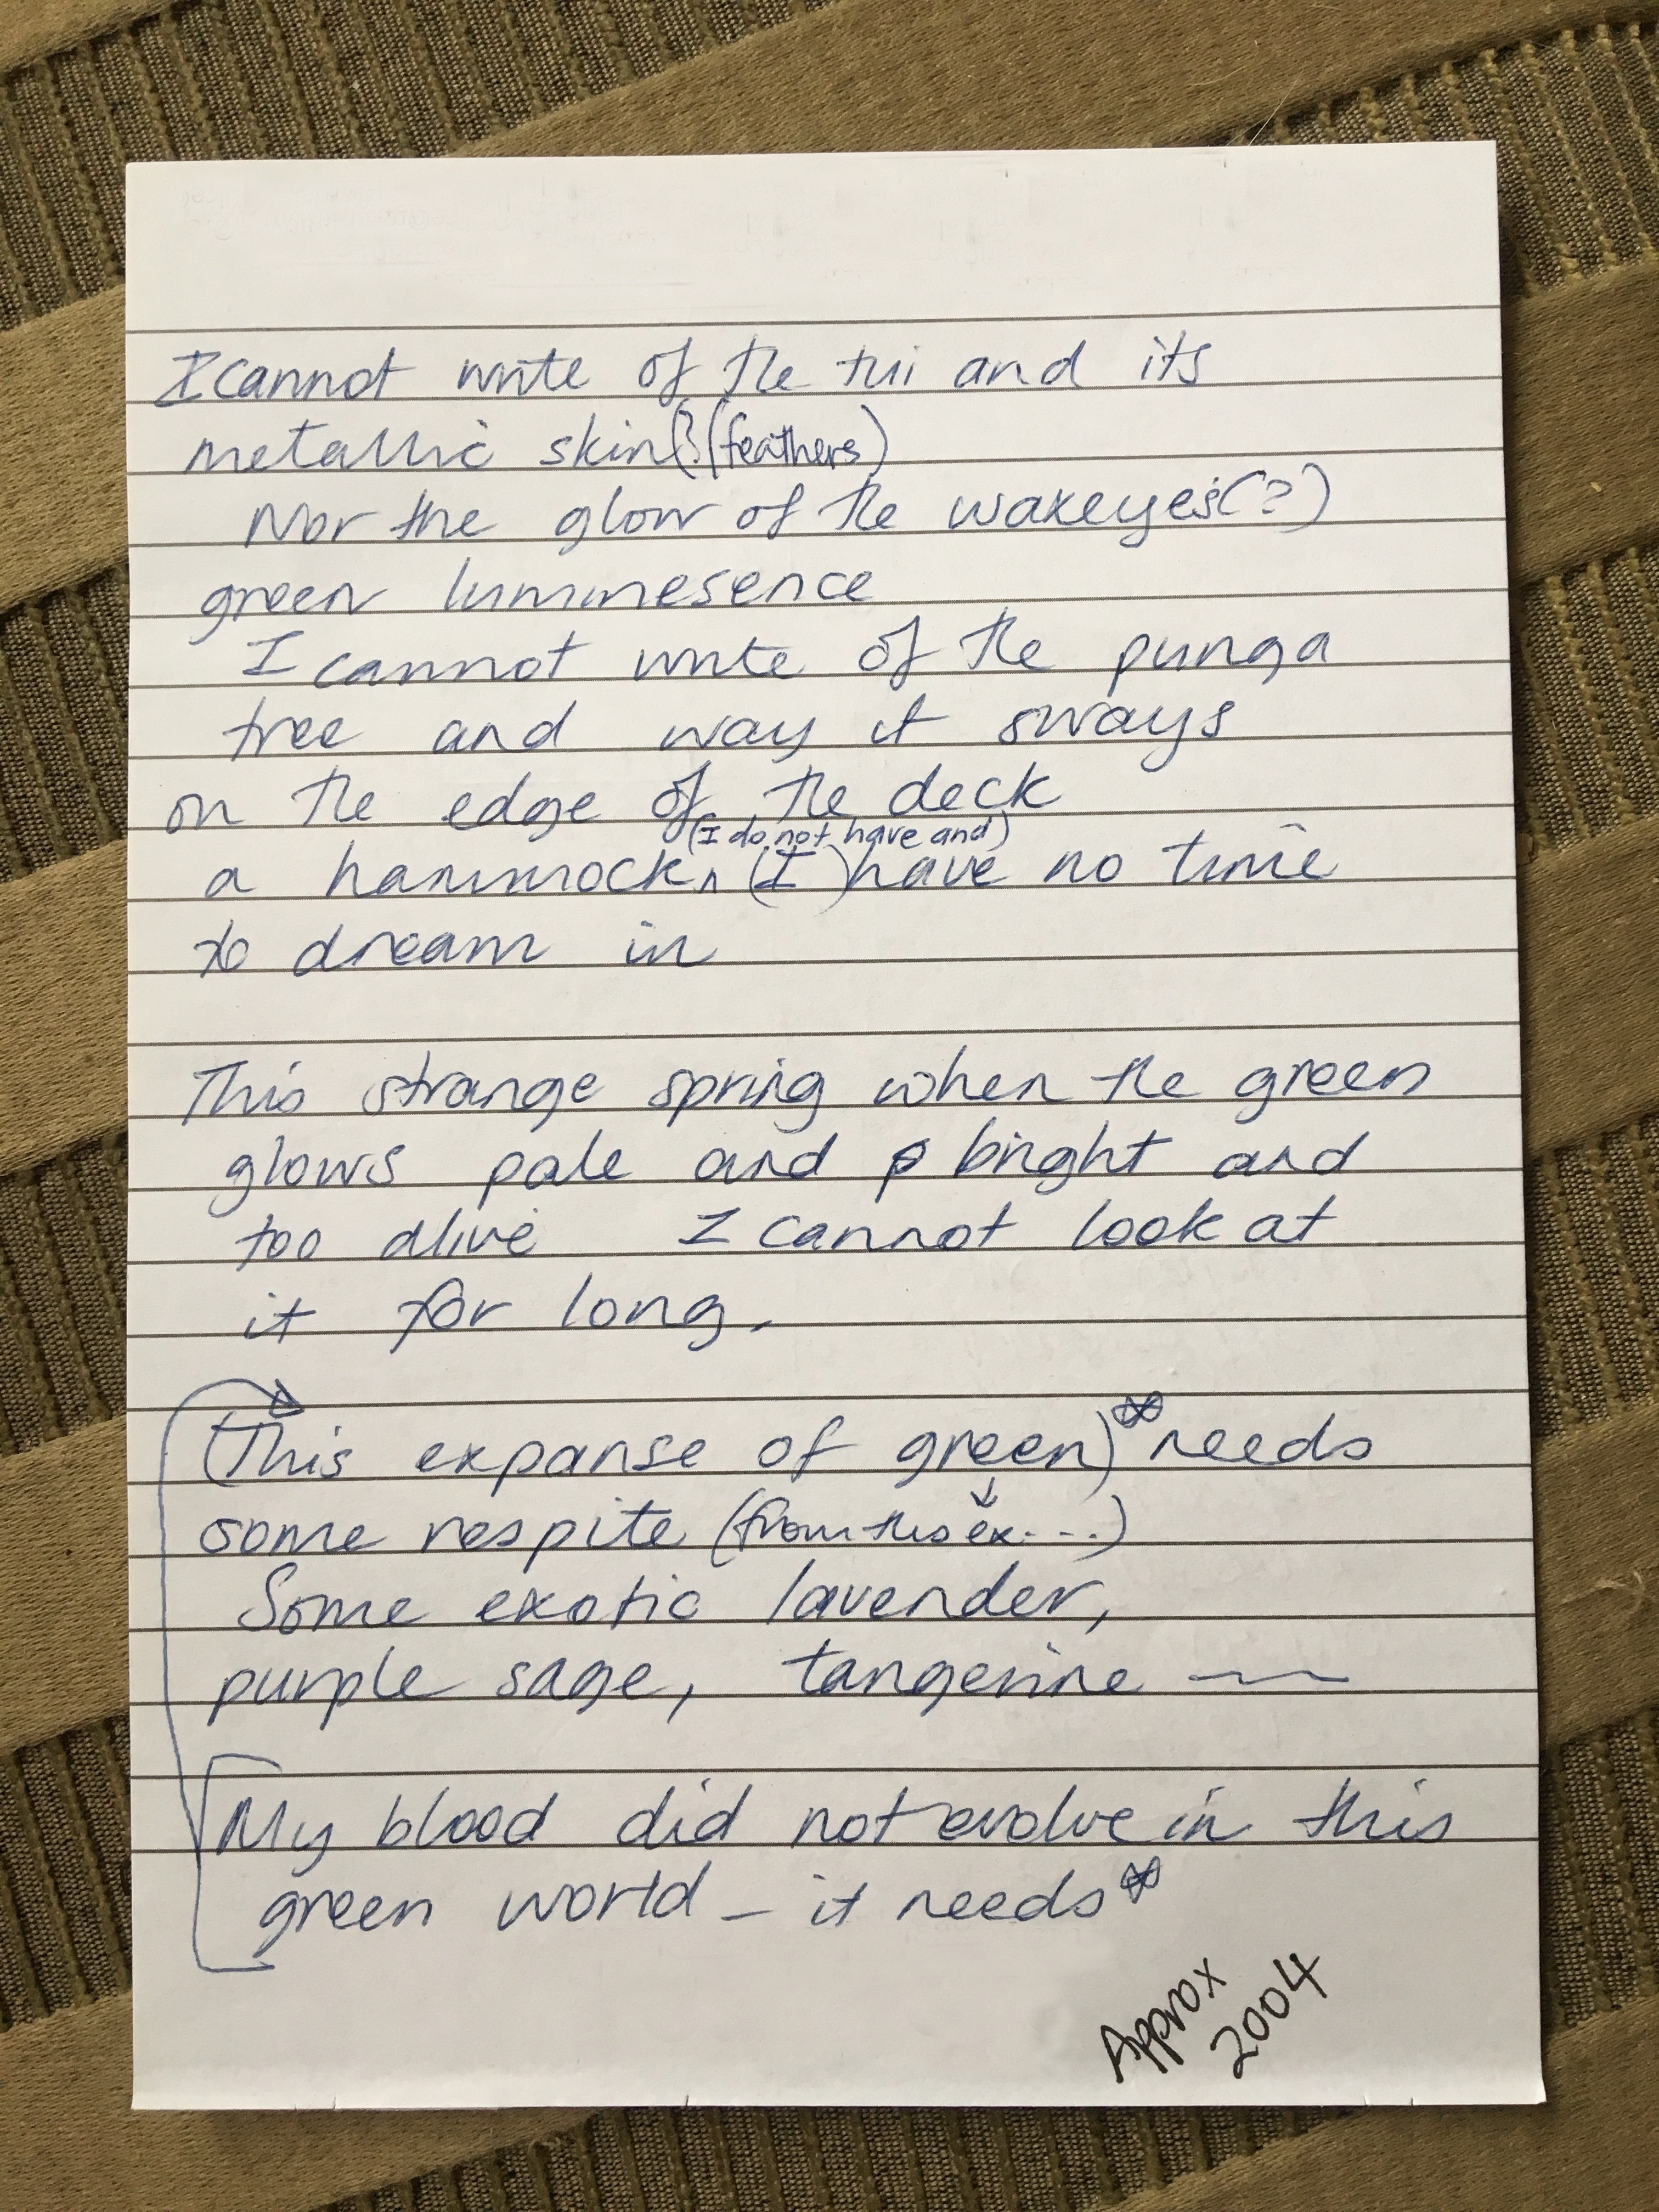 I cannot write of the tui and its
metallic skin(?(feathers)
Nor the glow of the waxeyes(?)
green luminesence
I cannot write of the punga
tree and way it sways
on the edge of the deck
(I do not have and)
a hammock, ^ (I) have no time
to dream in
This strange spring when the green
glows pale and bright and
too alive I cannot look at
it for long.
(This expanse of green)* needs
some respite (from this ex....)
Some exotic lavender,
purple sage, tangerine ~~
My blood did not evolve in this
green world - it needs*
Approx
2004